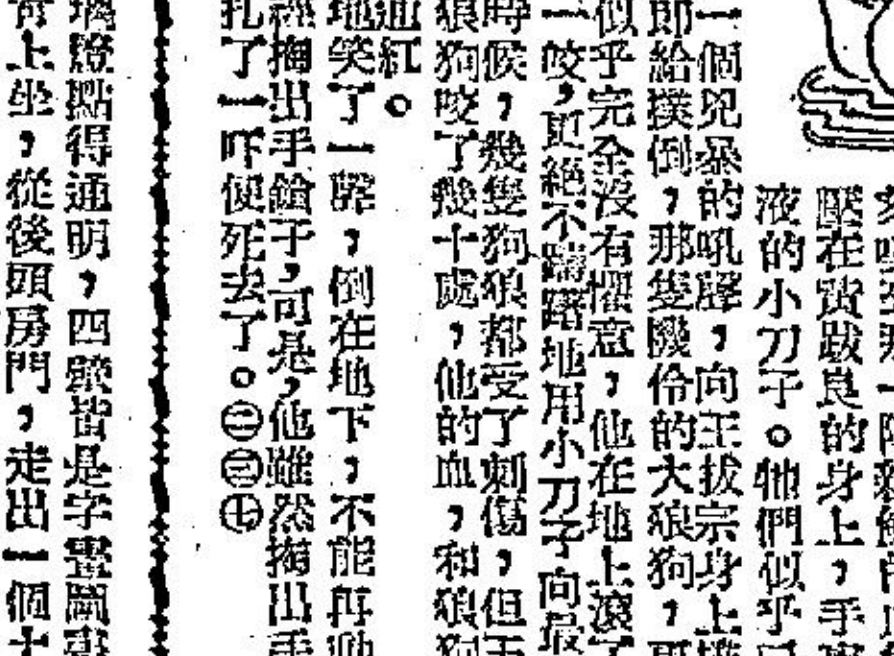 壓在賁跋良的身上，手
液的小刀子。牠們似乎
一個兇暴的吼聲，向王拔宗身上
即給撲倒，那隻機伶的大狼狗，
似乎完全沒有懼意，他在地上滾了
一咬，更絕不躊躇地用小刀子向最
時候，幾隻狗狼都受了刺傷，但王
狼狗咬了幾十處，他的血，和狼狗
通紅。
地笑了一聲，倒在地下，不能再動
經掏出手鎗子，可是，他雖然掏出手
扎了一吓便死去了。㊁㊂㊆
璃燈點得通明，四壁皆是字畫圖書
上坐，從後頭房門，走出一個